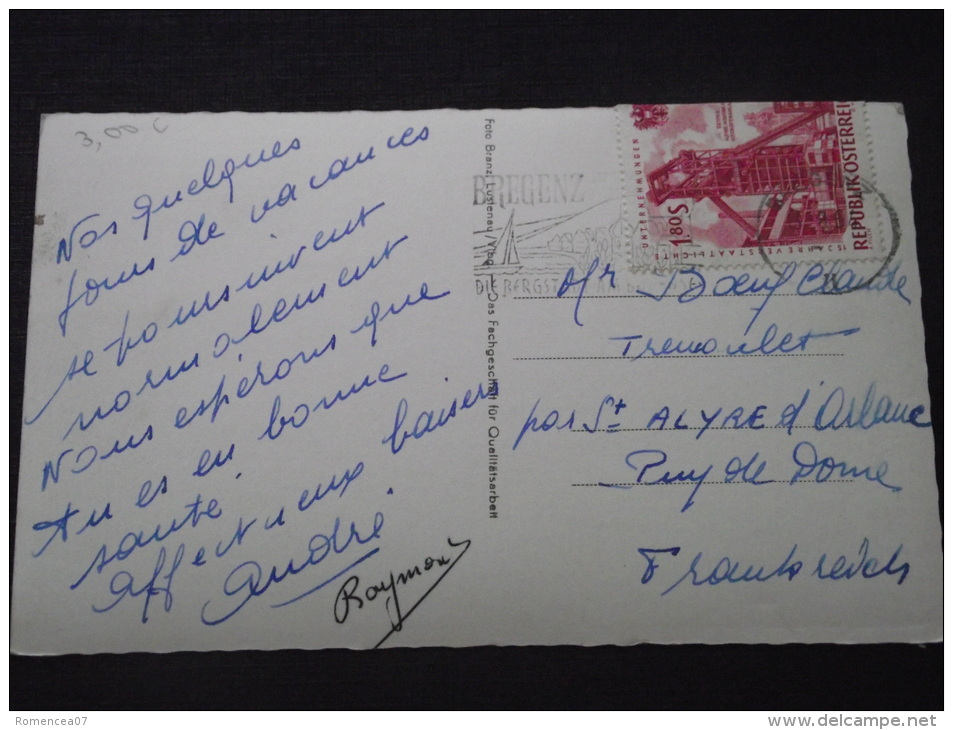 3,00 €
Nos quelques
jours de vacances
se poursuivent
normalement
Nous espérons que
tu es en bonne
santé.
Affectueux baisers
André
Raymond
Foto Branz, Lustenau / Vlbg. — Das Fachgeschäft für Qualitätsarbeit
BREGENZ
DIE BERGSTADT AM BODENSEE
1.80 S
UNTERNEHMUNGEN
15 JAHRE VERSTAATLICHTE
REPUBLIK ÖSTERREICH
Mr Boeuf Claude
Tremoulet
par St ALYRE d'Arlanc
Puy de Dome
Frankreich
Romencea07
delcampe.net